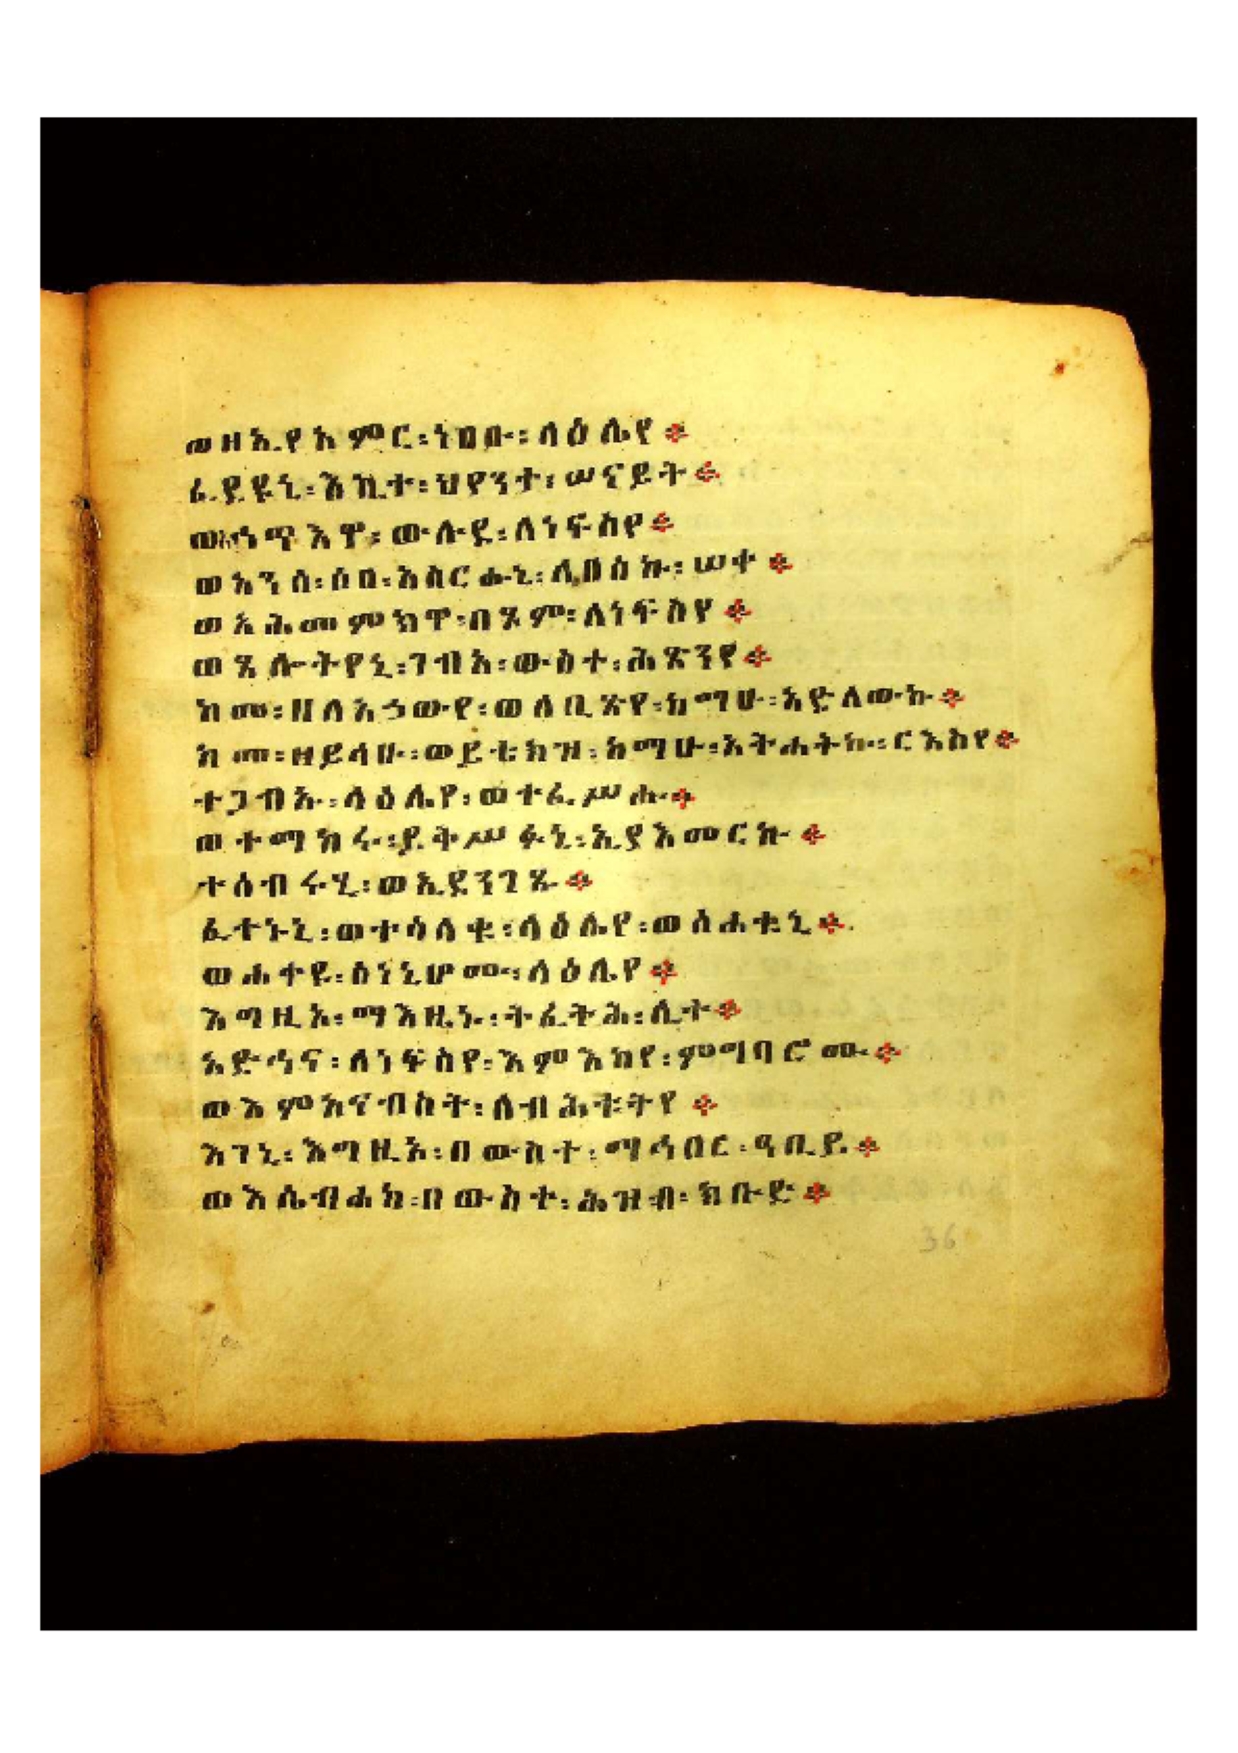 ወዘኢየአምር፡ነበቡ፡ላዕሌየ።
ፈደዩኒ፡እኪተ፡ህየንተ፡ሠናይት።
ውሉደ፡ለነፍስየ።
ወአንሰ፡ሶበ፡አስርሑኒ፡ለበስኩ፡ሠቀ።
ወአሕመምክዋ፡በጾም፡ለነፍስየ።
ወጸሎትየኒ፡ገብአ፡ውስተ፡ሕጽንየ።
ከመ፡ዘለአኃውየ፡ወለቢጽየ፡ከማሁ፡አድለውኩ።
ከመ፡ዘይላሁ፡ወይቴክዝ፡ከማሁ፡አትሐትኩ፡ርእስየ።
ተጋብኡ፡ላዕሌየ፡ወተፈሥሑ።
ወተማከሩ፡ይትሥፉኒ፡ኢያእመርኩ።
ተሰብሩሂ፡ወኢደንገጹ።
ፈተኑኒ፡ወተሳለቁ፡ላዕሌየ፡ወሰሐቁኒ።
ወሐቀዩ፡ስነኒሆሙ፡ላዕሌየ።
እግዚኦ፡ማእዜኑ፡ትፈትሕ፡ሊተ።
አድኅና፡ለነፍስየ፡እምእከየ፡ምግባሮሙ።
ወእምአናብስት፡ለብሕቱትየ።
እገኒ፡እግዚኦ፡በውስተ፡ማኅበር፡ዓቢይ።
ወእሴብሐከ፡በውስተ፡ሕዝብ፡ክቡድ።
36